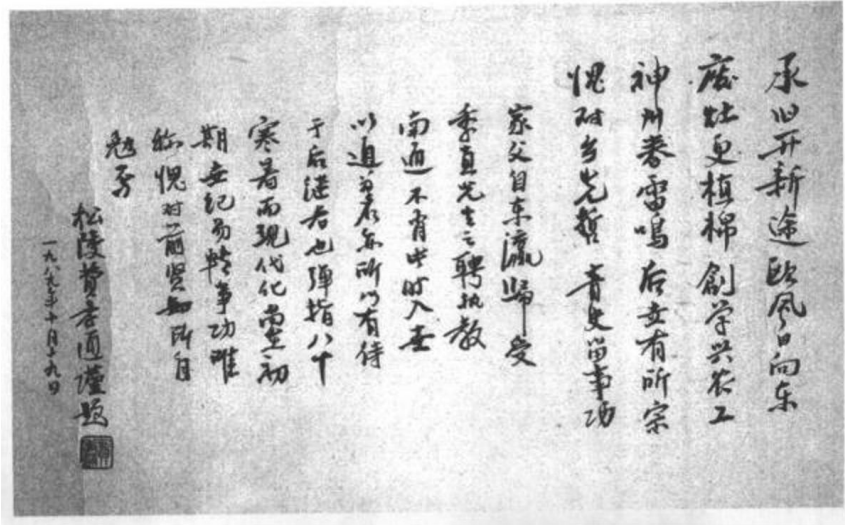 承旧开新途欧风日向东
废灶更植棉创学兴农工
神州春雷鸣后世有所宗
愧对乡先哲青史留事功
家父自东瀛归受
季直先生之聘执教
南通不肖生时入世
以通为名亦所以有待
于后继者也弹指八十
寒暑而现代化尚在初
期世纪易转事功难
称愧对前贤所自
勉焉
松陵费孝通谨题
一九八九年十月十九日